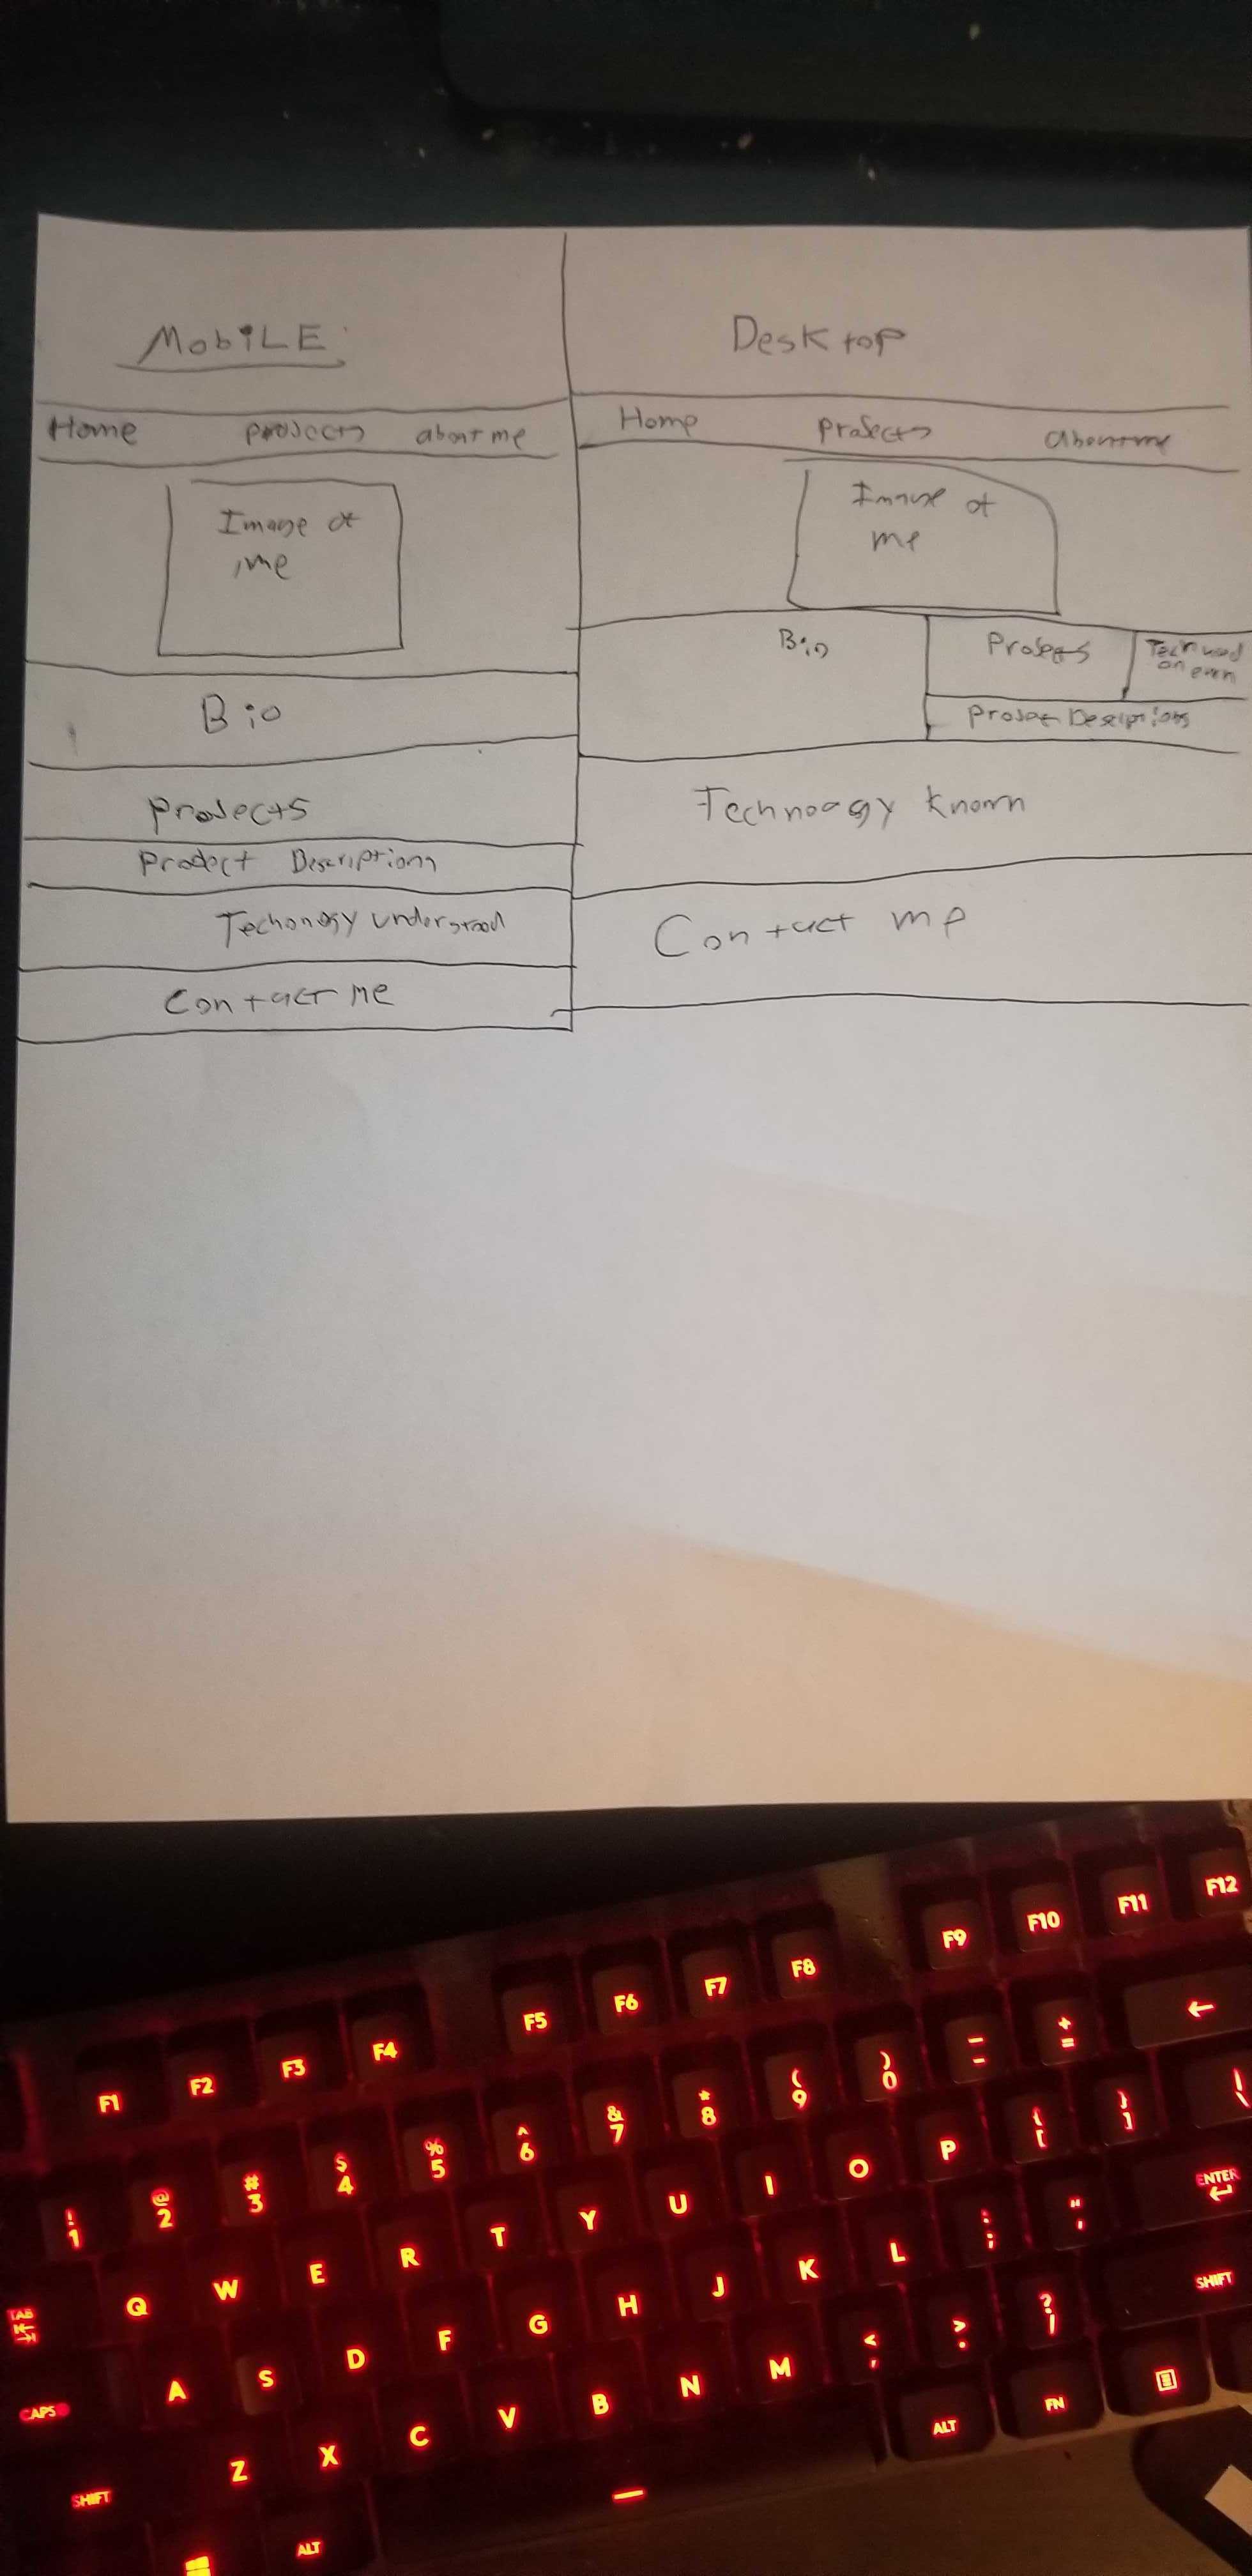 MobiLE
Home projects about me
Image of
me
Bio
Projects
Project Descriptions
Techonogy understood
Contact me
Desktop
Home projects about me
Image of
me
Bio
Projects
Tech used
on
Project Descriptions
Technoogy known
Contact me
F1 F2 F3 F4 F5 F6 F7 F8 F9 F10 F11 F12
! 1 @ 2 # 3 $ 4 % 5 ^ 6 & 7 * 8 ( 9 ) 0 _ - + = ←
TAB Q W E R T Y U I O P { [ } ] | \
CAPS A S D F G H J K L : ; " ' ENTER
SHIFT Z X C V B N M < , > . ? / SHIFT
ALT ALT FN